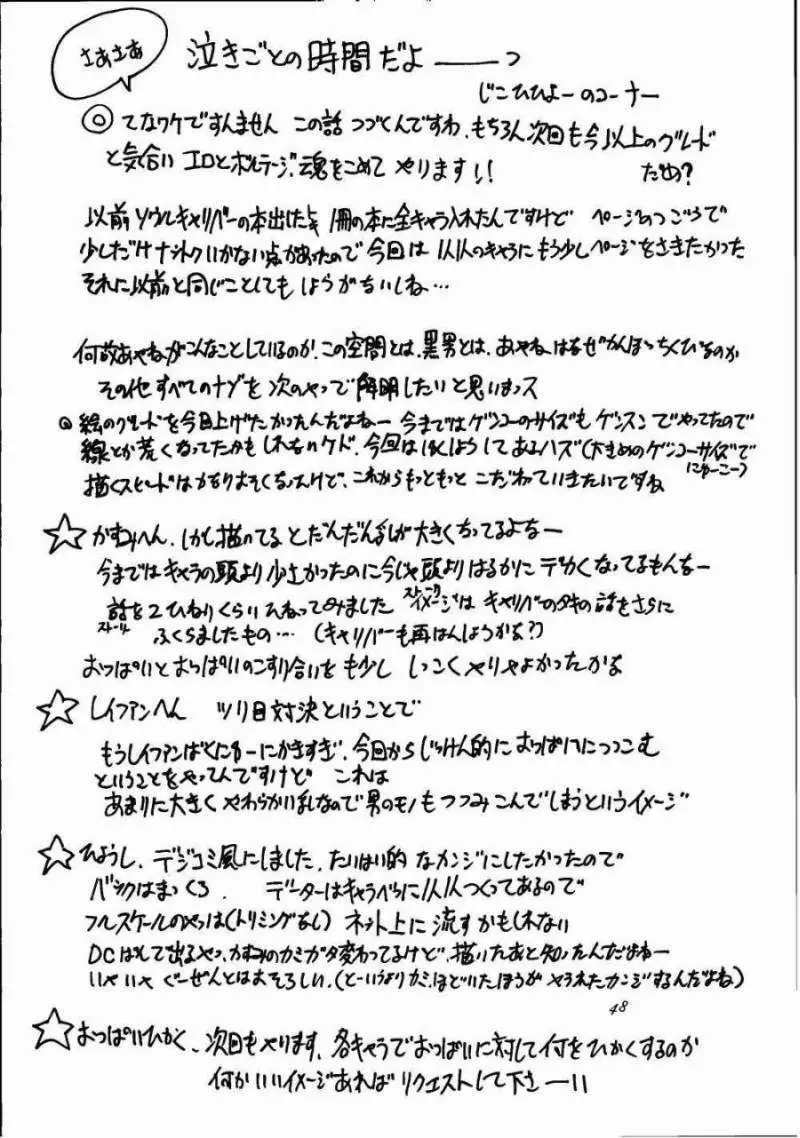 さあさあ
泣きごとの時間だよ――っ
じこひひょーのコーナー
◎ てなワケですんません この話 つづくんですわ、もちろん次回も今以上のグレード
と気合い エロとボルテージ、魂をこめて やります!!
だめ?
以前 ソウルキャリバーの本出したとき 1冊の本に全キャラ入れたんですけど ページのつごうで
少しだけナットクいかない点があったので今回は 1人1人のキャラにもう少しページをさきたかった
それに以前と同じことしても しょうがないしね…
何故あやねがこんなことしているのか、この空間とは、黒男とは、あやねはなぜ
その他 すべてのナゾを 次のやつで 解明したいと思いまっス
◎ 絵のグレードを今回上げたかったんだよねー 今まではゲンコーのサイズも ゲンスンでやってたので
線とか荒くなってたかもしれないケド、今回は してあるハズ(大きめのゲンコーサイズで
描くスピードはかなりおそくなったけど、これからもっともっと こだわっていきたいですね
☆ かすみへん、しかし描いてるとだんだん乳が大きくなってるよなー
今まではキャラの頭より小さかったのに今じゃ頭よりはるかに デカくなってるもんなー
話を2ひねりくらいひねってみました イメージは キャリバーのタキの話をさらに
ストーリー
ふくらましたもの… (キャリバーも再はんしようかな?)
おっぱいとおっぱいのこすり合いを も少し しつこくやりゃよかったかな
☆ レイファンへん ツリ目対決ということで
もうレイファンばくにゅーにかきすぎ、今回からじっけん的におっぱいにつっこむ
ということをやってんですけど これは
あまりに大きく やわらかい乳なので男のモノもつつみこんでしまうというイメージ
☆ ひょうし、デジコミ風にしました、たいはい的 なカンジにしたかったので
バックはまっくろ、 データーはキャラべつに1人1人つくってあるので
フルスケールのやつは(トリミングなし) ネット上に流すかもしれない
DCはんで出るやつ、かすみのカミガタ変わってるけど、描いたあと知ったんだよねー
いやいや ぐーぜんとはおそろしい、(とーいうよりカミ、ほどいたほうが やられたカンジするんだよね)
48
☆ おっぱいひかく、次回もやります、各キャラでおっぱいに対して何をひかくするのか
何かいいイメージあれば リクエストして下さーいい